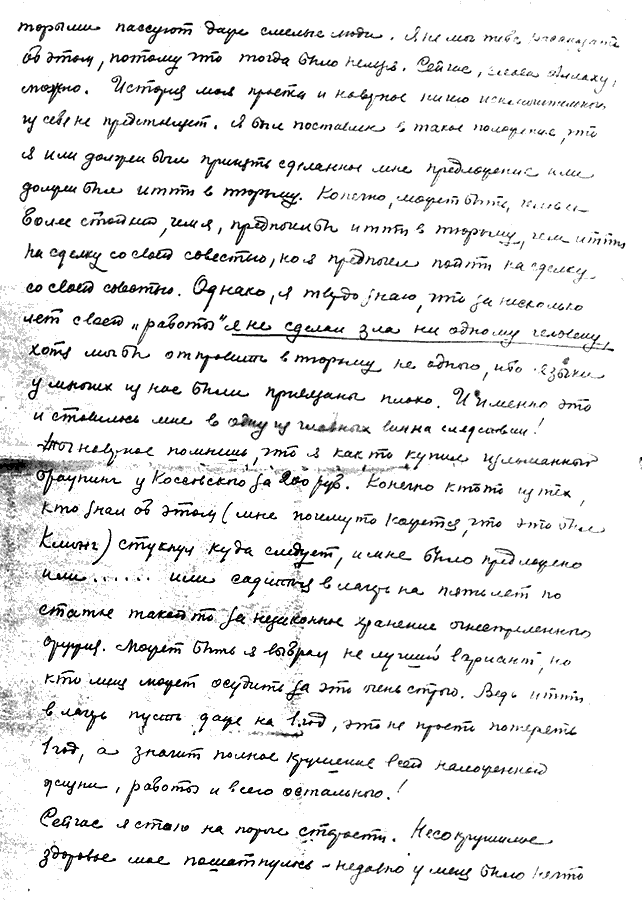 торыми пассуют даже смелые люди. Я не мог тебе рассказать
об этом, потому что тогда было нельзя. Сейчас, слава Аллаху,
можно. История моя проста и наверное ничего исключительного
из себя не представляет. Я был поставлен в такое положение, что
я или должен был принять сделанное мне предложение или
должен был итти в тюрьму. Конечно, может быть, кто-ни
более стойкий, чем я, предпочел бы итти в тюрьму, чем итти
на сделку со своей совестью, но я предпочел пойти на сделку
со своей совестью. Однако, я твердо знаю, что за несколько
лет своей „работы" я не сделал зла ни одному человеку,
хотя мог бы отправить в тюрьму не одного, ибо языки
у многих из нас были привязаны плохо. И именно это
и ставилось мне в одну из главных вин на следствии!
Ты наверное помнишь, что я как то купил изломанный
браунинг у Коссовского за 200 руб. Конечно кто то из тех,
кто знал об этом (мне почему то кажется, что это был
Клинг) стукнул куда следует, и мне было предложено
или ...... или садиться в лагерь на пять лет по
статье такой то за незаконное хранение огнестрельного
оружия. Может быть я выбрал не лучший вариант, но
кто меня может осудить за это очень строго. Ведь итти
в лагерь пусть даже на 1 год, это не просто потерять
1 год, а значит полное крушение всей налаженной
жизни, работы и всего остального!
Сейчас я стою на пороге старости. Несокрушимое
здоровье мое пошатнулось – недавно у меня было нечто